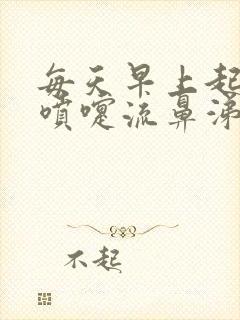 每天早上起
喷嚏流鼻涕
不起